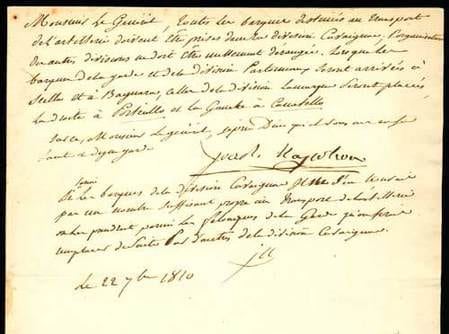 Monsieur le Général, toutes les barques destinées au transport
de l'artillerie doivent être prises dans la division Cavaignac, l'organisation
des autres divisions ne doit être nullement dérangée. Lorsque les
barques de la garde et de la division Partouneaux seront arrivées à
Scilla et à Bagnara, celles de la division Lamarque seront placées
la droite à et la Gauche à
Sur ce, Monsieur le général, je prie Dieu qu'il vous ait en sa
sainte et digne garde
Napoléon
Si les barques de la division Cavaignac
par un nombre suffisant propre au transport de l'artillerie
on en prendrait parmi les barques de la Garde qu'on ferait
remplacer de suite par d'autres de la division Cavaignac.
Le 22 7bre 1810